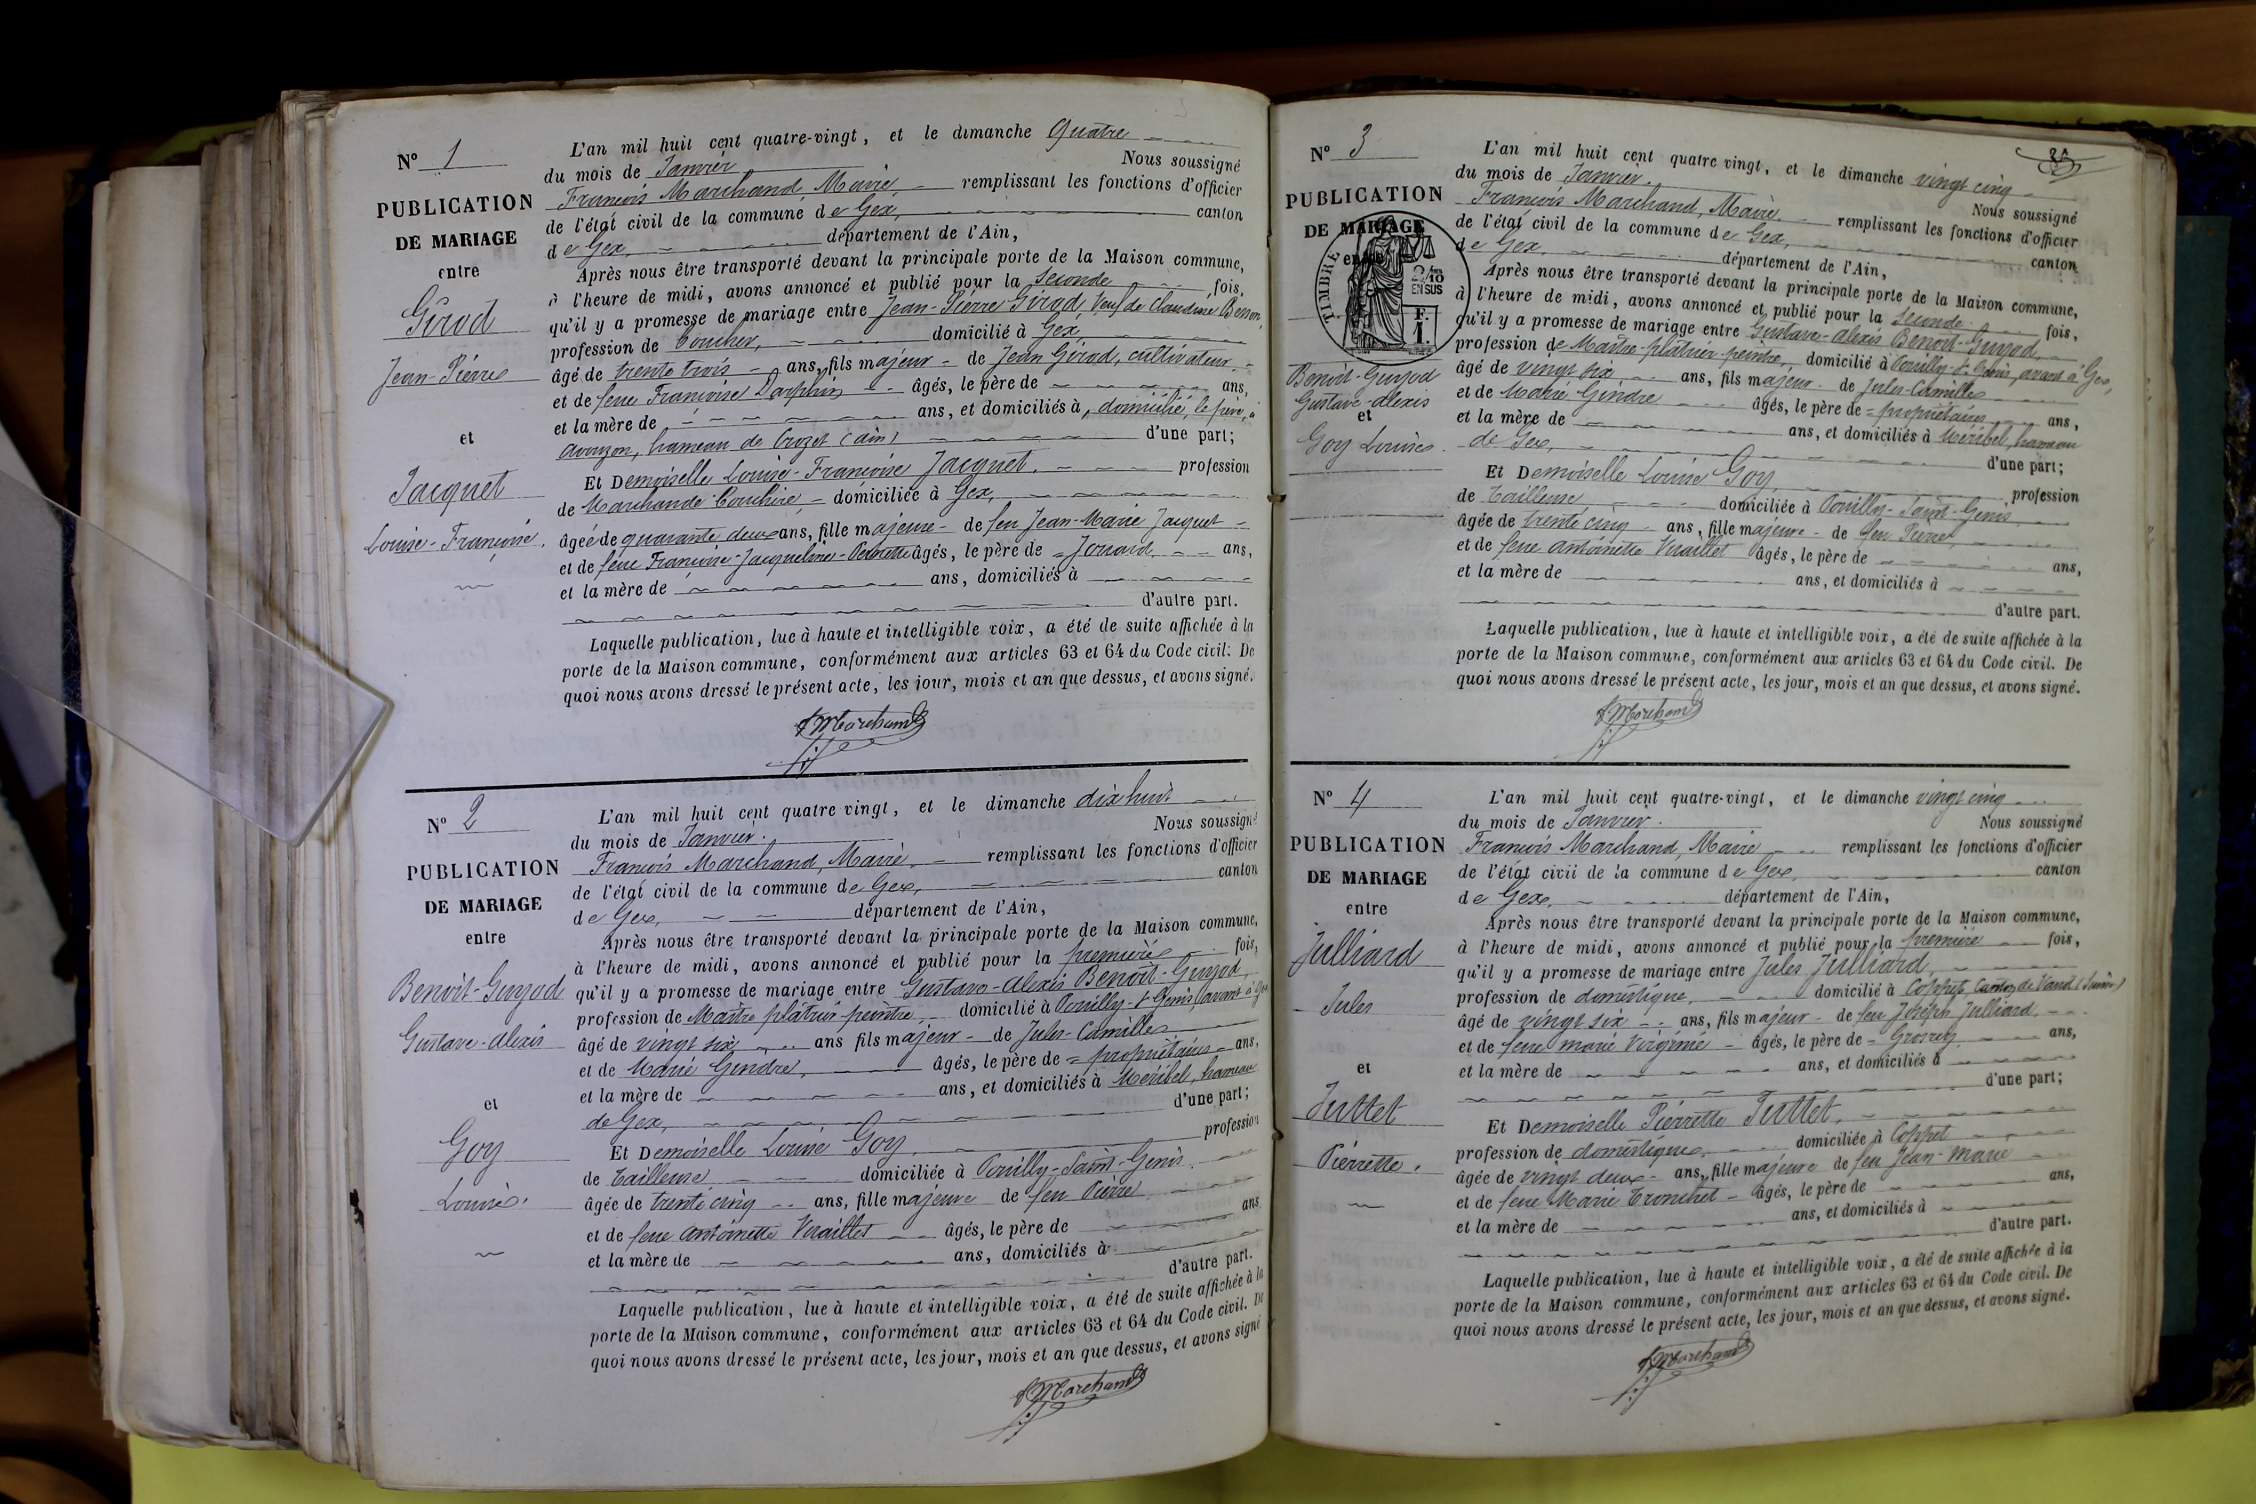 N° 1
PUBLICATION
DE MARIAGE
entre
Girod
Jean-Pierre
et
Jacquet
Louise-Françoise.
L'an mil huit cent quatre-vingt, et le dimanche quatre
du mois de Janvier Nous soussigné
François Marchand, Maire, remplissant les fonctions d'officier
de l'état civil de la commune de Gex, canton
de Gex, département de l'Ain,
Après nous être transporté devant la principale porte de la Maison commune,
à l'heure de midi, avons annoncé et publié pour la seconde fois,
qu'il y a promesse de mariage entre Jean-Pierre Girod, Veuf de Claudine Besson,
profession de Boucher, domicilié à Gex,
âgé de trente trois ans, fils majeur de Jean Girod, cultivateur
et de feue Françoise Darphin âgés, le père de ans,
et la mère de ans, et domiciliés à, domicilié le père, à
Avouzon, hameau de Crozet (Ain) d'une part;
Et Demoiselle Louise-Françoise Jacquet. profession
de Marchande Bouchère, domiciliée à Gex,
âgée de quarante deux ans, fille majeure de feu Jean-Marie Jacquet
et de feue Françoise-Jacqueline-Pernette âgés, le père de = Jouard, ans,
et la mère de ans, domiciliés à
d'autre part.
Laquelle publication, lue à haute et intelligible voix, a été de suite affichée à la
porte de la Maison commune, conformément aux articles 63 et 64 du Code civil. De
quoi nous avons dressé le présent acte, les jour, mois et an que dessus, et avons signé.
f Marchand
N° 2
PUBLICATION
DE MARIAGE
entre
Benoit-Guyod
Gustave-Alexis
et
Goy
Louise.
L'an mil huit cent quatre-vingt, et le dimanche dix huit
du mois de Janvier. Nous soussigné
François Marchand, Maire, remplissant les fonctions d'officier
de l'état civil de la commune de Gex, canton
de Gex, département de l'Ain,
Après nous être transporté devant la principale porte de la Maison commune,
à l'heure de midi, avons annoncé et publié pour la première fois,
qu'il y a promesse de mariage entre Gustave-Alexis Benoit-Guyod,
profession de Maître plâtrier-peintre, domicilié à Pouilly-St Genis, avant à Gex
âgé de vingt six ans fils majeur de Jules-Camille
et de Marie Gindre, âgés, le père de = propriétaires ans,
et la mère de ans, et domiciliés à Meribel, hameau
de Gex, d'une part;
Et Demoiselle Louise Goy, profession
de Tailleuse, domiciliée à Pouilly-Saint-Genis
âgée de trente cinq ans, fille majeure de feu Pierre
et de feue Antoinette Vuaillet âgés, le père de ans
et la mère de ans, domiciliés à
d'autre part.
Laquelle publication, lue à haute et intelligible voix, a été de suite affichée à la
porte de la Maison commune, conformément aux articles 63 et 64 du Code civil. De
quoi nous avons dressé le présent acte, les jour, mois et an que dessus, et avons signé
f Marchand
N° 3
PUBLICATION
DE MARIAGE
entre
TIMBRE
2/10
EN SUS
F.
1.
Benoit-Guyod
Gustave-Alexis
et
Goy Louise.
L'an mil huit cent quatre vingt, et le dimanche vingt cinq
du mois de Janvier. Nous soussigné
François Marchand, Maire, remplissant les fonctions d'officier
de l'état civil de la commune de Gex, canton
de Gex, département de l'Ain,
Après nous être transporté devant la principale porte de la Maison commune,
à l'heure de midi, avons annoncé et publié pour la seconde fois,
qu'il y a promesse de mariage entre Gustave-Alexis Benoit-Guyod,
profession de Maître-plâtrier-peintre, domicilié à Pouilly-St Genis, avant à Gex,
âgé de vingt six ans, fils majeur de Jules-Camille
et de Marie Gindre âgés, le père de = propriétaires ans,
et la mère de ans, et domiciliés à Méribel, hameau
de Gex, d'une part;
Et Demoiselle Louise Goy, profession
de Tailleuse, domiciliée à Pouilly-Saint-Genis
âgée de trente cinq ans, fille majeure de feu Pierre,
et de feue Antoinette Vuaillet âgés, le père de ans,
et la mère de ans, et domiciliés à
d'autre part.
Laquelle publication, lue à haute et intelligible voix, a été de suite affichée à la
porte de la Maison commune, conformément aux articles 63 et 64 du Code civil. De
quoi nous avons dressé le présent acte, les jour, mois et an que dessus, et avons signé.
f Marchand
N° 4
PUBLICATION
DE MARIAGE
entre
Julliard
Jules
et
Juttet
Pierrette.
L'an mil huit cent quatre-vingt, et le dimanche vingt cinq
du mois de Janvier. Nous soussigné
François Marchand, Maire remplissant les fonctions d'officier
de l'état civil de la commune de Gex, canton
de Gex, département de l'Ain,
Après nous être transporté devant la principale porte de la Maison commune,
à l'heure de midi, avons annoncé et publié pour la première fois,
qu'il y a promesse de mariage entre Jules Julliard,
profession de domestique, domicilié à Coppet, Canton de Vaud (Suisse)
âgé de vingt six ans, fils majeur de feu Joseph Julliard,
et de feue Marie Virginie âgés, le père de = Grosrey ans,
et la mère de ans, et domiciliés à
d'une part;
Et Demoiselle Pierrette Juttet,
profession de domestique, domiciliée à Coppet
âgée de vingt deux ans, fille majeure de feu Jean-Marie
et de feue Marie Tronchet âgés, le père de ans,
et la mère de ans, et domiciliés à
d'autre part.
Laquelle publication, lue à haute et intelligible voix, a été de suite affichée à la
porte de la Maison commune, conformément aux articles 63 et 64 du Code civil. De
quoi nous avons dressé le présent acte, les jour, mois et an que dessus, et avons signé.
f Marchand